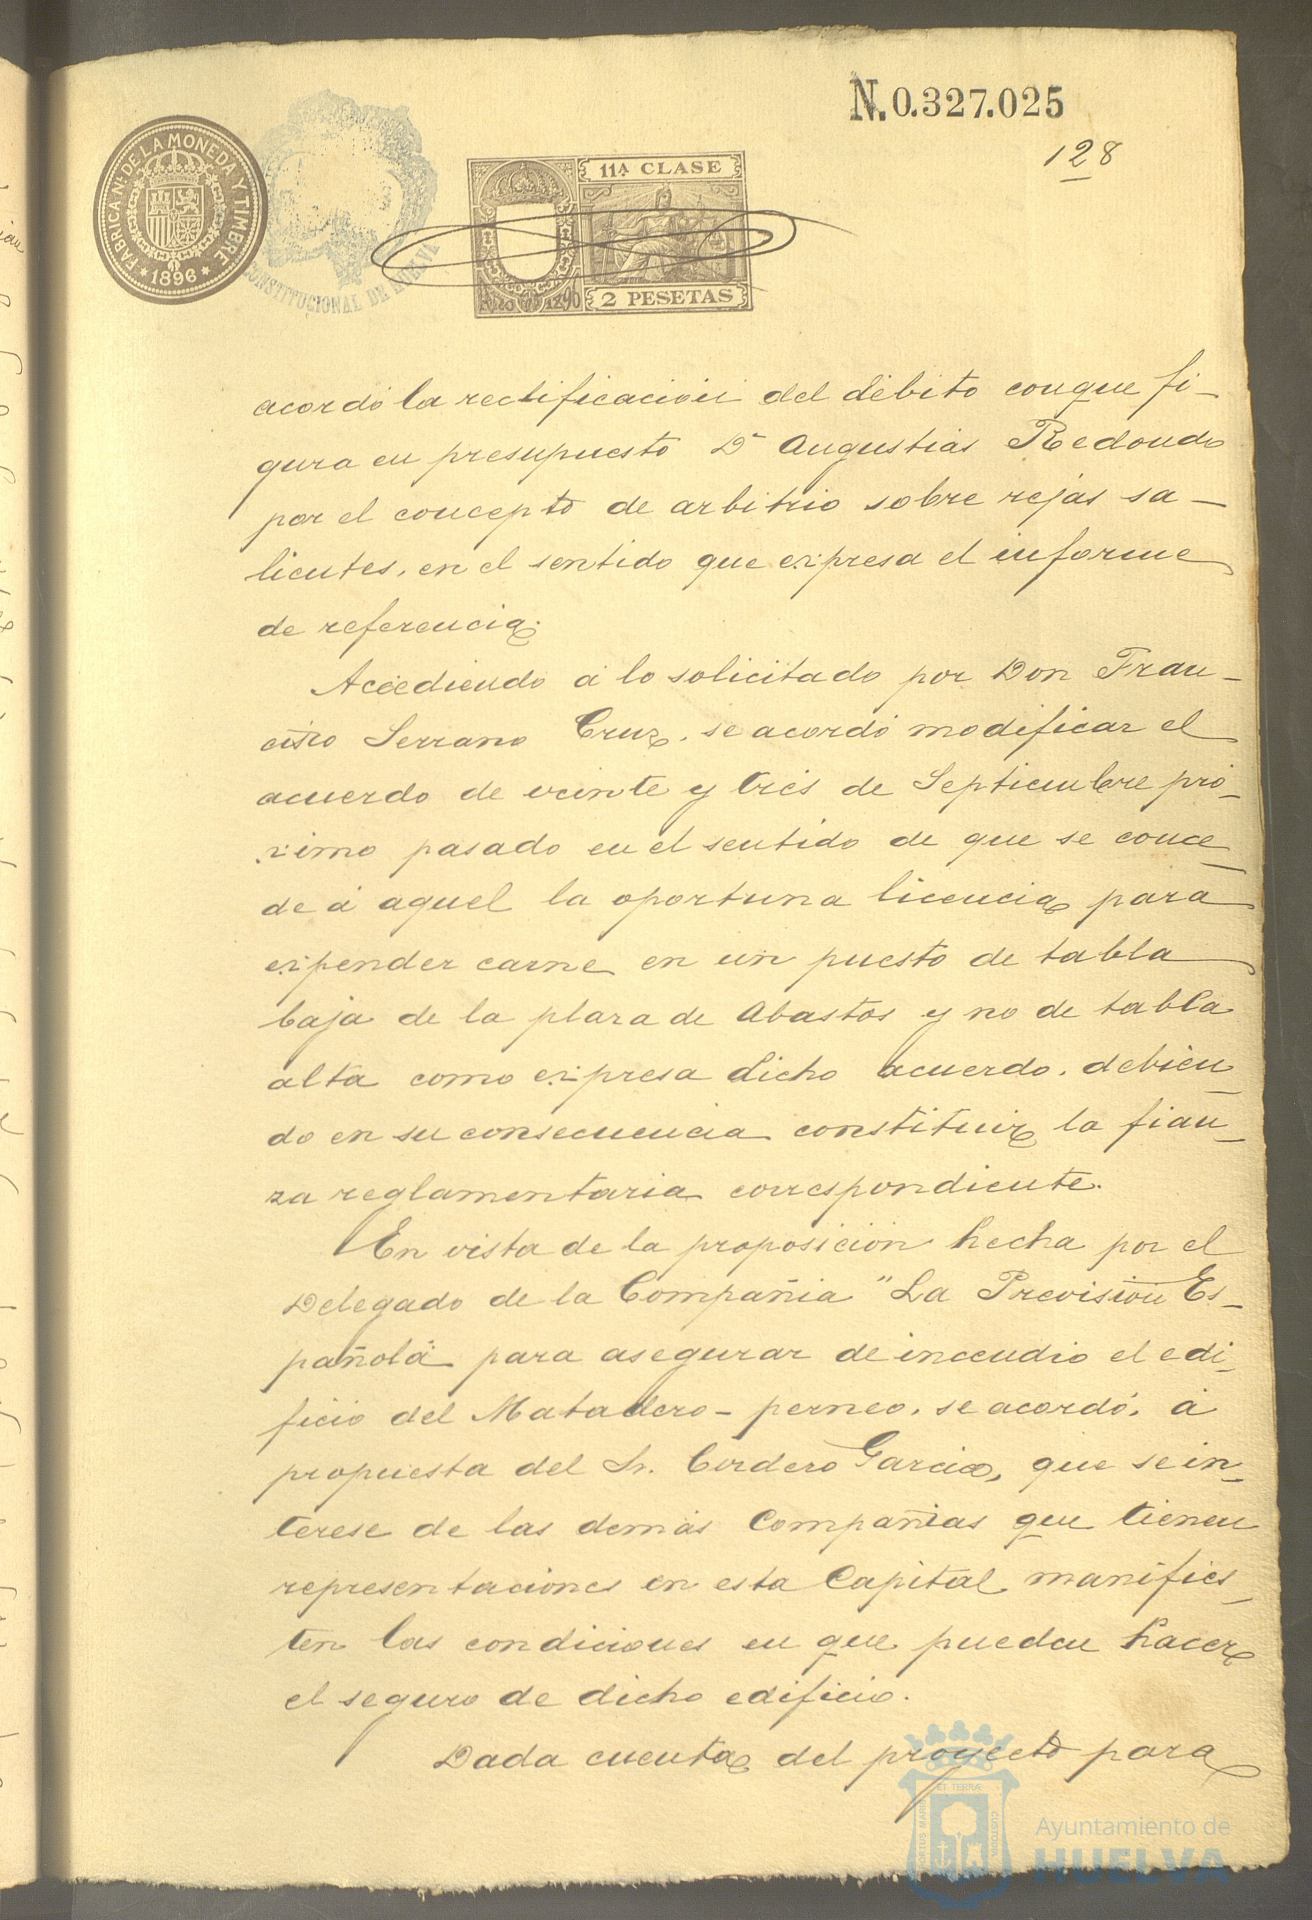 N. 0.327.025
128
FÁBRICA Nˡ. DE LA MONEDA Y TIMBRE
1896
CONSTITUCIONAL DE HUELVA
11ª CLASE
2 PESETAS
acordó la rectificación del débito conque fi-
gura en presupuesto Dª Augustias Redondo
por el concepto de arbitrio sobre rejas sa-
lientes, en el sentido que expresa el informe
de referencia.
Accediendo á lo solicitado por Don Fran-
cisco Serrano Cruz, se acordó modificar el
acuerdo de veinte y tres de Septiembre pró-
ximo pasado en el sentido de que se conce-
de á aquel la oportuna licencia para
expender carne en un puesto de tabla
baja de la plaza de Abastos y no de tabla
alta como expresa dicho acuerdo, debien-
do en su consecuencia constituir la fian-
za reglamentaria correspondiente.
En vista de la proposición hecha por el
Delegado de la Compañia "La Previsión Es-
pañola" para asegurar de incendio el edi-
ficio del Matadero-perneo, se acordó, á
propuesta del Sr. Cordero Garcia, que se in-
terese de las demás Compañias que tienen
representaciones en esta Capital manifies-
ten las condiciones en que puedan hacer
el seguro de dicho edificio.
Dada cuenta del proyecto para
Ayuntamiento de
HUELVA